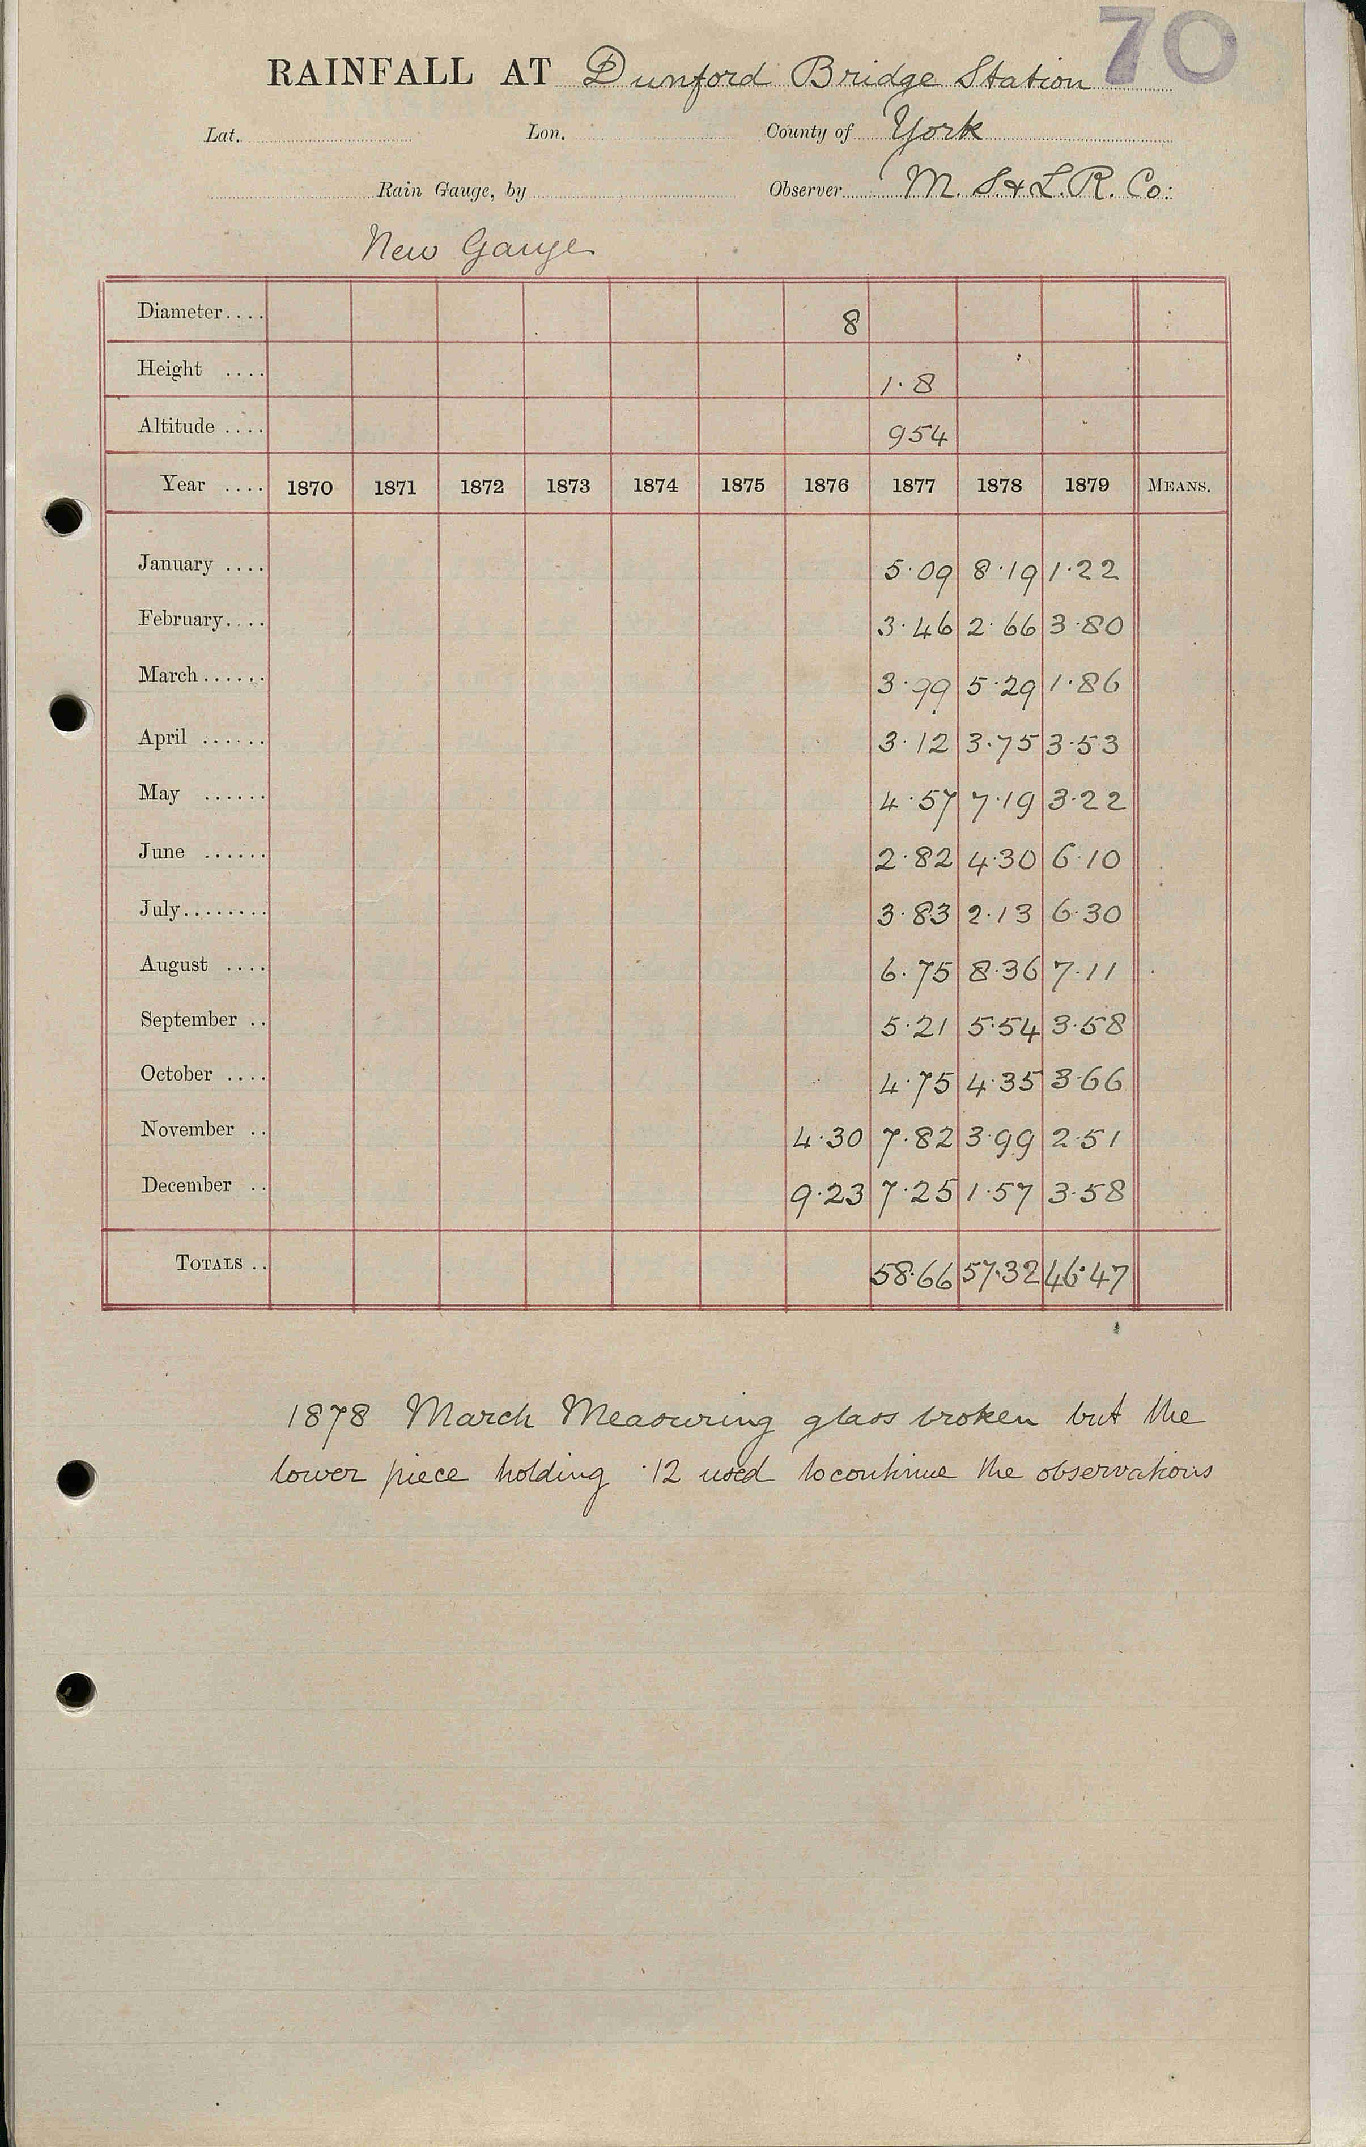 70
RAINFALL AT Dunford Bridge Station
Lat. Lon. County of York
Rain Gauge, by Observer M. S & L. R. Co:
New Gauge
Diameter.... 8
Height .... 1.8
Altitude .... 954
Year .... 1870 1871 1872 1873 1874 1875 1876 1877 1878 1879 MEANS.
January .... 5.09 8.19 1.22
February.... 3.46 2.66 3.80
March...... 3.99 5.29 1.86
April ...... 3.12 3.75 3.53
May ...... 4.57 7.19 3.22
June ...... 2.82 4.30 6.10
July........ 3.83 2.13 6.30
August .... 6.75 8.36 7.11
September .. 5.21 5.54 3.58
October .... 4.75 4.35 3.66
November .. 4.30 7.82 3.99 2.51
December .. 9.23 7.25 1.57 3.58
TOTALS .. 58.66 57.32 46.47
1878 March Measuring glass broken but the
lower piece holding .12 used to continue the observations